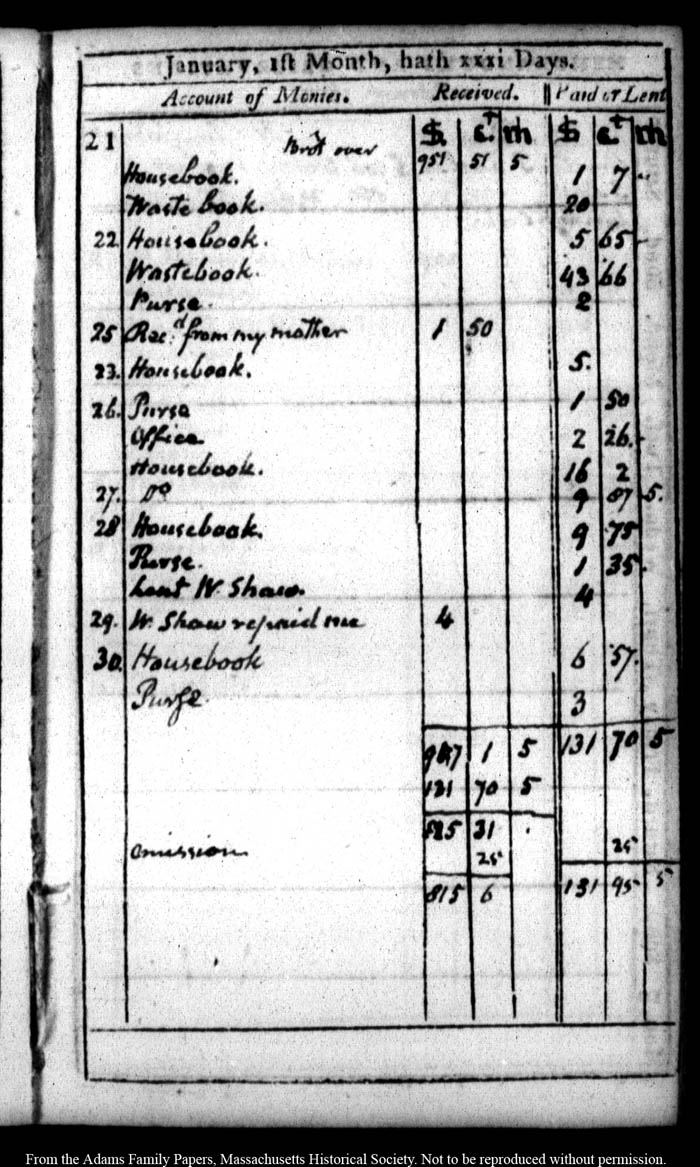 January, 1ſt Month, hath xxxi Days.
Account of Monies. Received. Paid or Lent
21 $. ct. m $ ct m
brot over 951 51 5
Housebook. 1 7 -
Waste book. 20
22. Housebook. 5 65 -
Wastebook. 43 66
Purse. 2
25 Rec.d from my mother 1 50
23. Housebook. 5.
26. Purse 1 50
Office 2 26. -
Housebook. 16 2
27. Do 9 87 5.
28 Housebook. 9 75
Purse. 1 35.
Lent W. Shaw. 4
29. W. Shaw repaid me 4
30. Housebook 6 57.
Purse. 3
957 1 5 131 70 5
131 70 5
825 31
omission 25 25
815 6 131 95 5
From the Adams Family Papers, Massachusetts Historical Society. Not to be reproduced without permission.